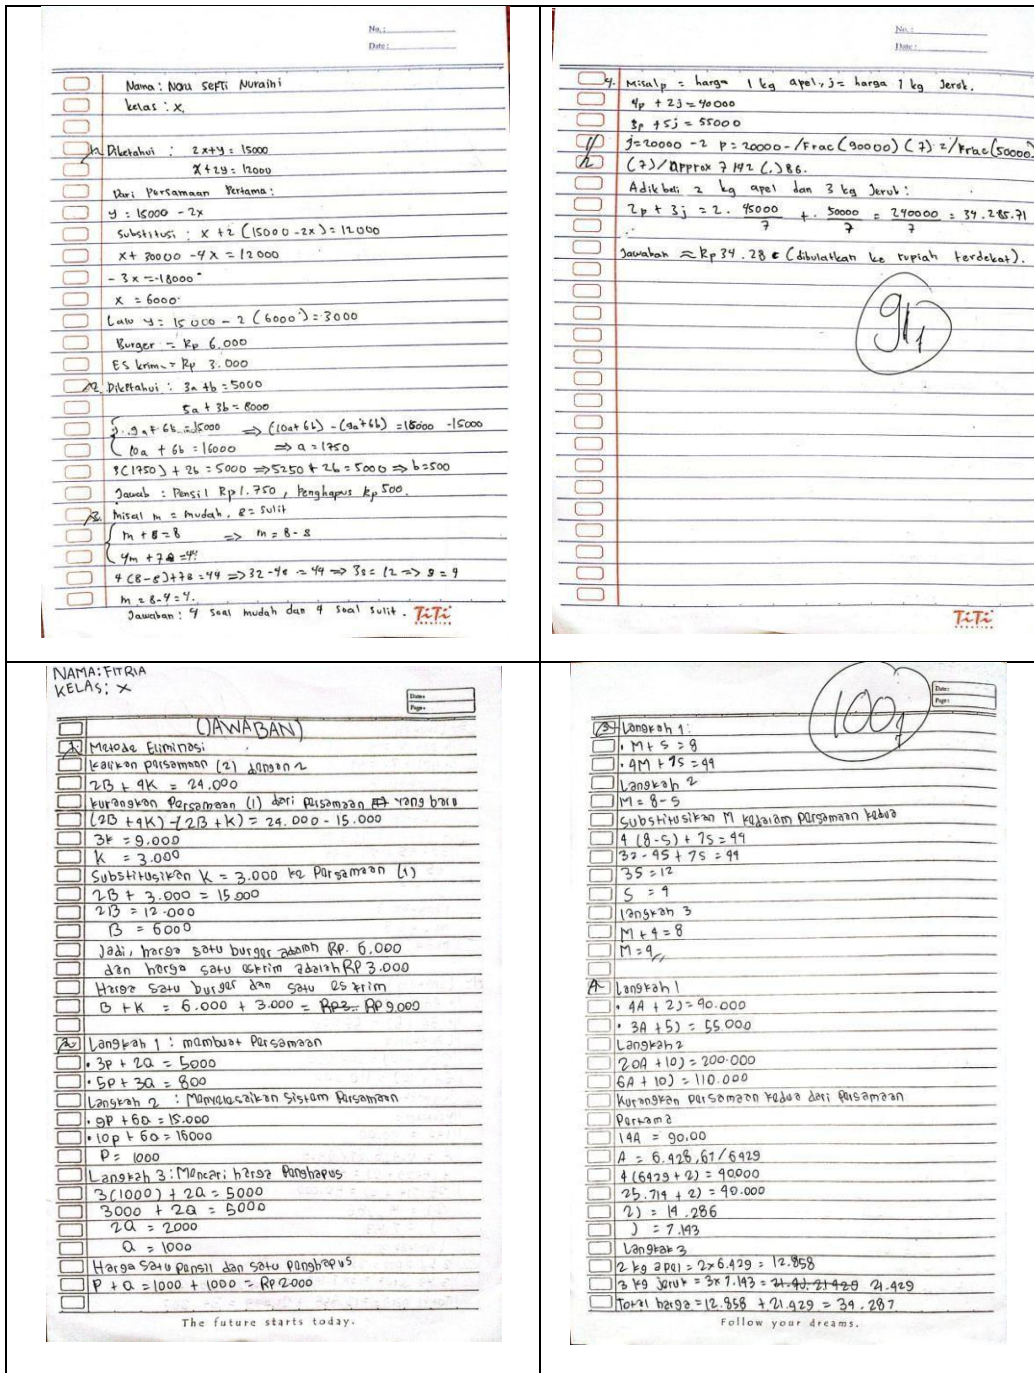 No.:
Date:
Nama: Novi Septi Nuraini
Kelas: X.
1. Diketahui : 2x+y = 15000
x+2y = 12000
Dari Persamaan Pertama:
y = 15000 - 2x
Substitusi : x + 2 (15000 - 2x) = 12000
x + 30000 - 4x = 12000
- 3x = -18000
x = 6000
Lalu y = 15000 - 2 (6000) = 3000
Burger = Rp 6.000
ES krim = Rp 3.000
2. Diketahui : 3a + b = 5000
5a + 3b = 8000
9a + 6b = 15000 ⇒ (10a+6b) - (9a+6b) = 16000 - 15000
10a + 6b = 16000 ⇒ a = 1750
3(1750) + 2b = 5000 ⇒ 5250 + 2b = 5000 ⇒ b = 500
Jawab : Pensil Rp 1.750, Penghapus Rp 500.
3. Misal m = mudah, s = sulit
m + s = 8 ⇒ m = 8 - s
4m + 7s = 44
4 (8-s) + 7s = 44 ⇒ 32 - 4s = 44 ⇒ 3s = 12 ⇒ s = 4
m = 8 - 4 = 4.
Jawaban : 4 soal mudah dan 4 soal sulit.
TiTi
No.:
Date:
4. Misal p = harga 1 kg apel, j = harga 1 kg Jeruk.
4p + 2j = 40000
3p + 5j = 55000
j = 20000 - 2 p = 20000 - /Frac (90000) (7) = /Frac (50000)
(7) / approx 7142 (,) 86.
Adik beli 2 kg apel dan 3 kg Jeruk :
2p + 3j = 2. 45000/7 + 50000/7 = 240000/7 = 34.285.71
Jawaban ≈ Rp 34.28 (dibulatkan ke rupiah terdekat).
91
TiTi
NAMA: FITRIA
KELAS: X
Date:
Page:
(JAWABAN)
1. Metode Eliminasi
Kalikan persamaan (2) dengan 2
2B + 4K = 24.000
Kurangkan Persamaan (1) dari persamaan yang baru
(2B + 4K) - (2B + K) = 24.000 - 15.000
3K = 9.000
K = 3.000
Substitusikan K = 3.000 ke Persamaan (1)
2B + 3.000 = 15.000
2B = 12.000
B = 6000
Jadi, harga satu burger adalah RP. 6.000
dan harga satu eskrim adalah RP 3.000
Harga satu burger dan satu es krim
B + K = 6.000 + 3.000 = RP 9.000
2. Langkah 1 : membuat Persamaan
• 3P + 2Q = 5000
• 5P + 3Q = 800
Langkah 2 : Menyelesaikan Sistem Persamaan
• 9P + 6Q = 15.000
• 10P + 6Q = 16000
P = 1000
Langkah 3 : Mencari harga Penghapus
3(1000) + 2Q = 5000
3000 + 2Q = 5000
2Q = 2000
Q = 1000
Harga Satu Pensil dan satu Penghapus
P + Q = 1000 + 1000 = Rp 2000
The future starts today.
100
Date:
Page:
3. Langkah 1:
• M + S = 8
• 4M + 7S = 44
Langkah 2
M = 8 - S
Substitusikan M kedalam persamaan kedua
4 (8-S) + 7S = 44
32 - 4S + 7S = 44
3S = 12
S = 4
langkah 3
M + 4 = 8
M = 4
4. Langkah 1
• 4A + 2J = 40.000
• 3A + 5J = 55.000
Langkah 2
20A + 10J = 200.000
6A + 10J = 110.000
Kurangkan persamaan kedua dari Persamaan
Pertama
14A = 90.00
A = 6.428,61/6429
4 (6429 + 2J = 40.000
25.714 + 2J = 40.000
2J = 14.286
J = 7.143
Langkah 3
2 kg apel = 2 x 6.429 = 12.858
3 kg Jeruk = 3 x 7.143 = 21.429
Total harga = 12.858 + 21.429 = 34.287
Follow your dreams.